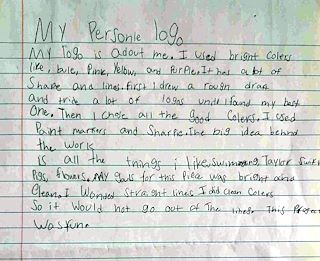 My Personle logo
My logo is adout me. I used bright Colers
like, bule, Pink, Yelow, and PurPle. It has a lot of
Shape and lines. first I drew a rough draf
and tride a lot of logos until I fand my best
One. Then I chose all the good Colers. I used
Paint markers and Sharpie. The big idea behind
the work
is all the things i like. Swimming, Taylor
Pigs, flowers. My gouls for this Piece was bright and
Clean. I Wonded straight lines I did clean Colers
So it would not go out of The lines. This Project
Was fun.